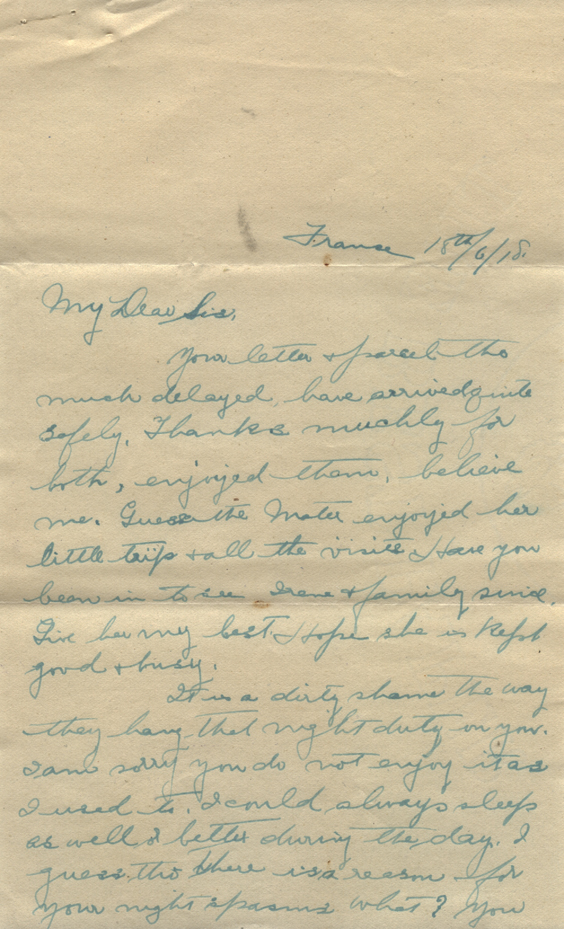 France 18th/6/18.
My Dear Sis,
Your letter & parcel tho
much delayed, have arrived quite
safely. Thanks muchly for
both, enjoyed them, believe
me. Guess the Mater enjoyed her
little trip & all the visits. Have you
been in to see Irene & family since.
Give her my best. Hope she is kept
good & busy.
It is a dirty shame the way
they hang that night duty on you.
I am sorry you do not enjoy it as
I used to. I could always sleep
as well & better during the day. I
guess tho there is a reason for
your night spasms what? You